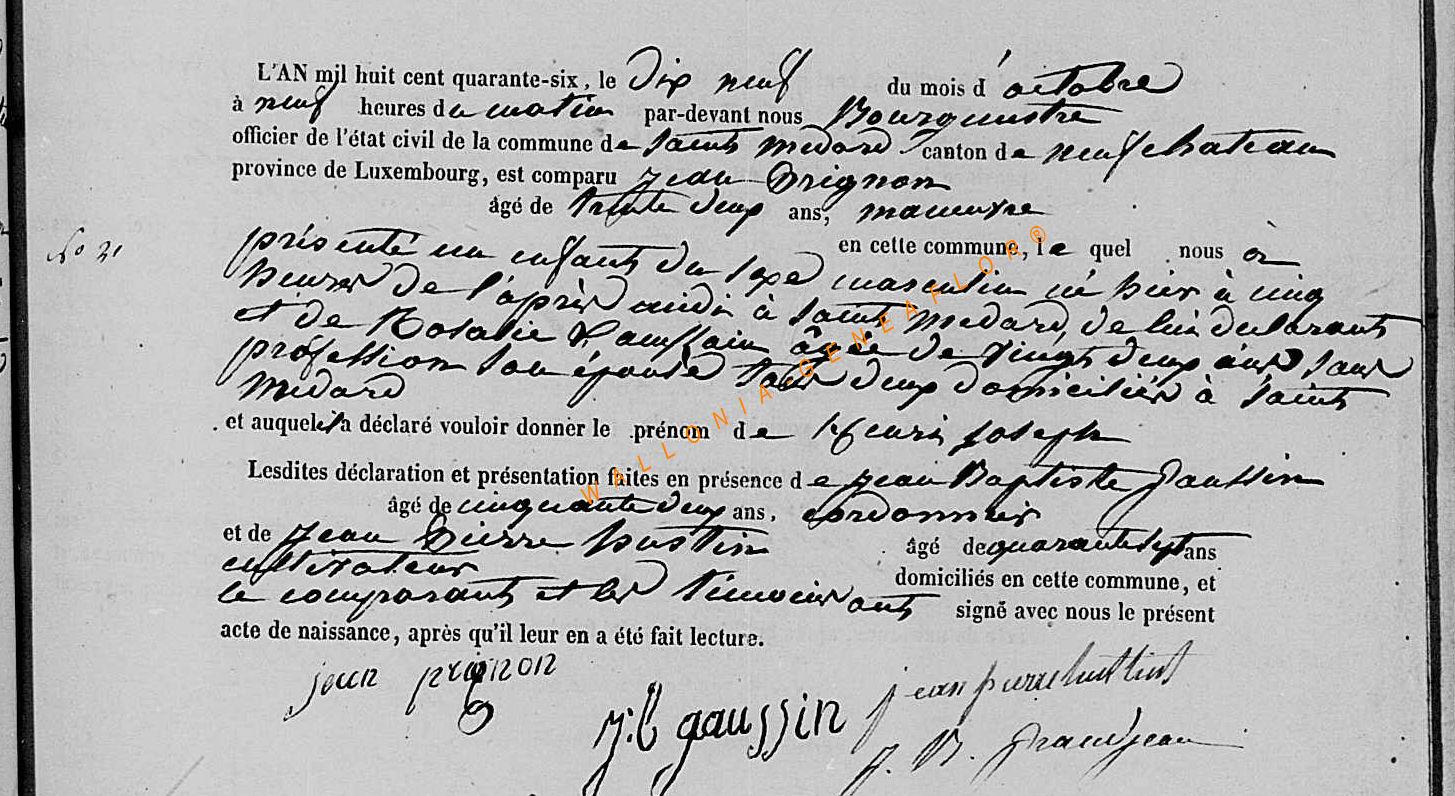 L'AN mil huit cent quarante-six, le Dix neuf du mois d'octobre
à neuf heures du matin par-devant nous Bourguestre
officier de l'état civil de la commune de Saint Medard canton de neufchateau
province de Luxembourg, est comparu Jean Prignon
âgé de trente deux ans, manoeuvre
No 31
en cette commune, le quel nous a
présenté un enfant du sexe masculin né hier à cinq
heures de l'après midi à Saint Medard, de lui declarant
et de Rosalie agée de vingt deux ans sans
profession son épouse tous deux domiciliés à Saint
Medard
et auquel il a déclaré vouloir donner le prénom de Henri Joseph
Lesdites déclaration et présentation faites en présence de Jean Baptiste Gaussin
âgé de cinquante deux ans, cordonnier
et de Jean Pierre Hustin âgé de quarante sept ans
cultivateur domiciliés en cette commune, et
le comparant et les témoins ont signé avec nous le présent
acte de naissance, après qu'il leur en a été fait lecture.
jean prignon
J: B gaussin
jean pierre hustin
J. B. Grandjean
WALLONIA GENEAFLOR ®